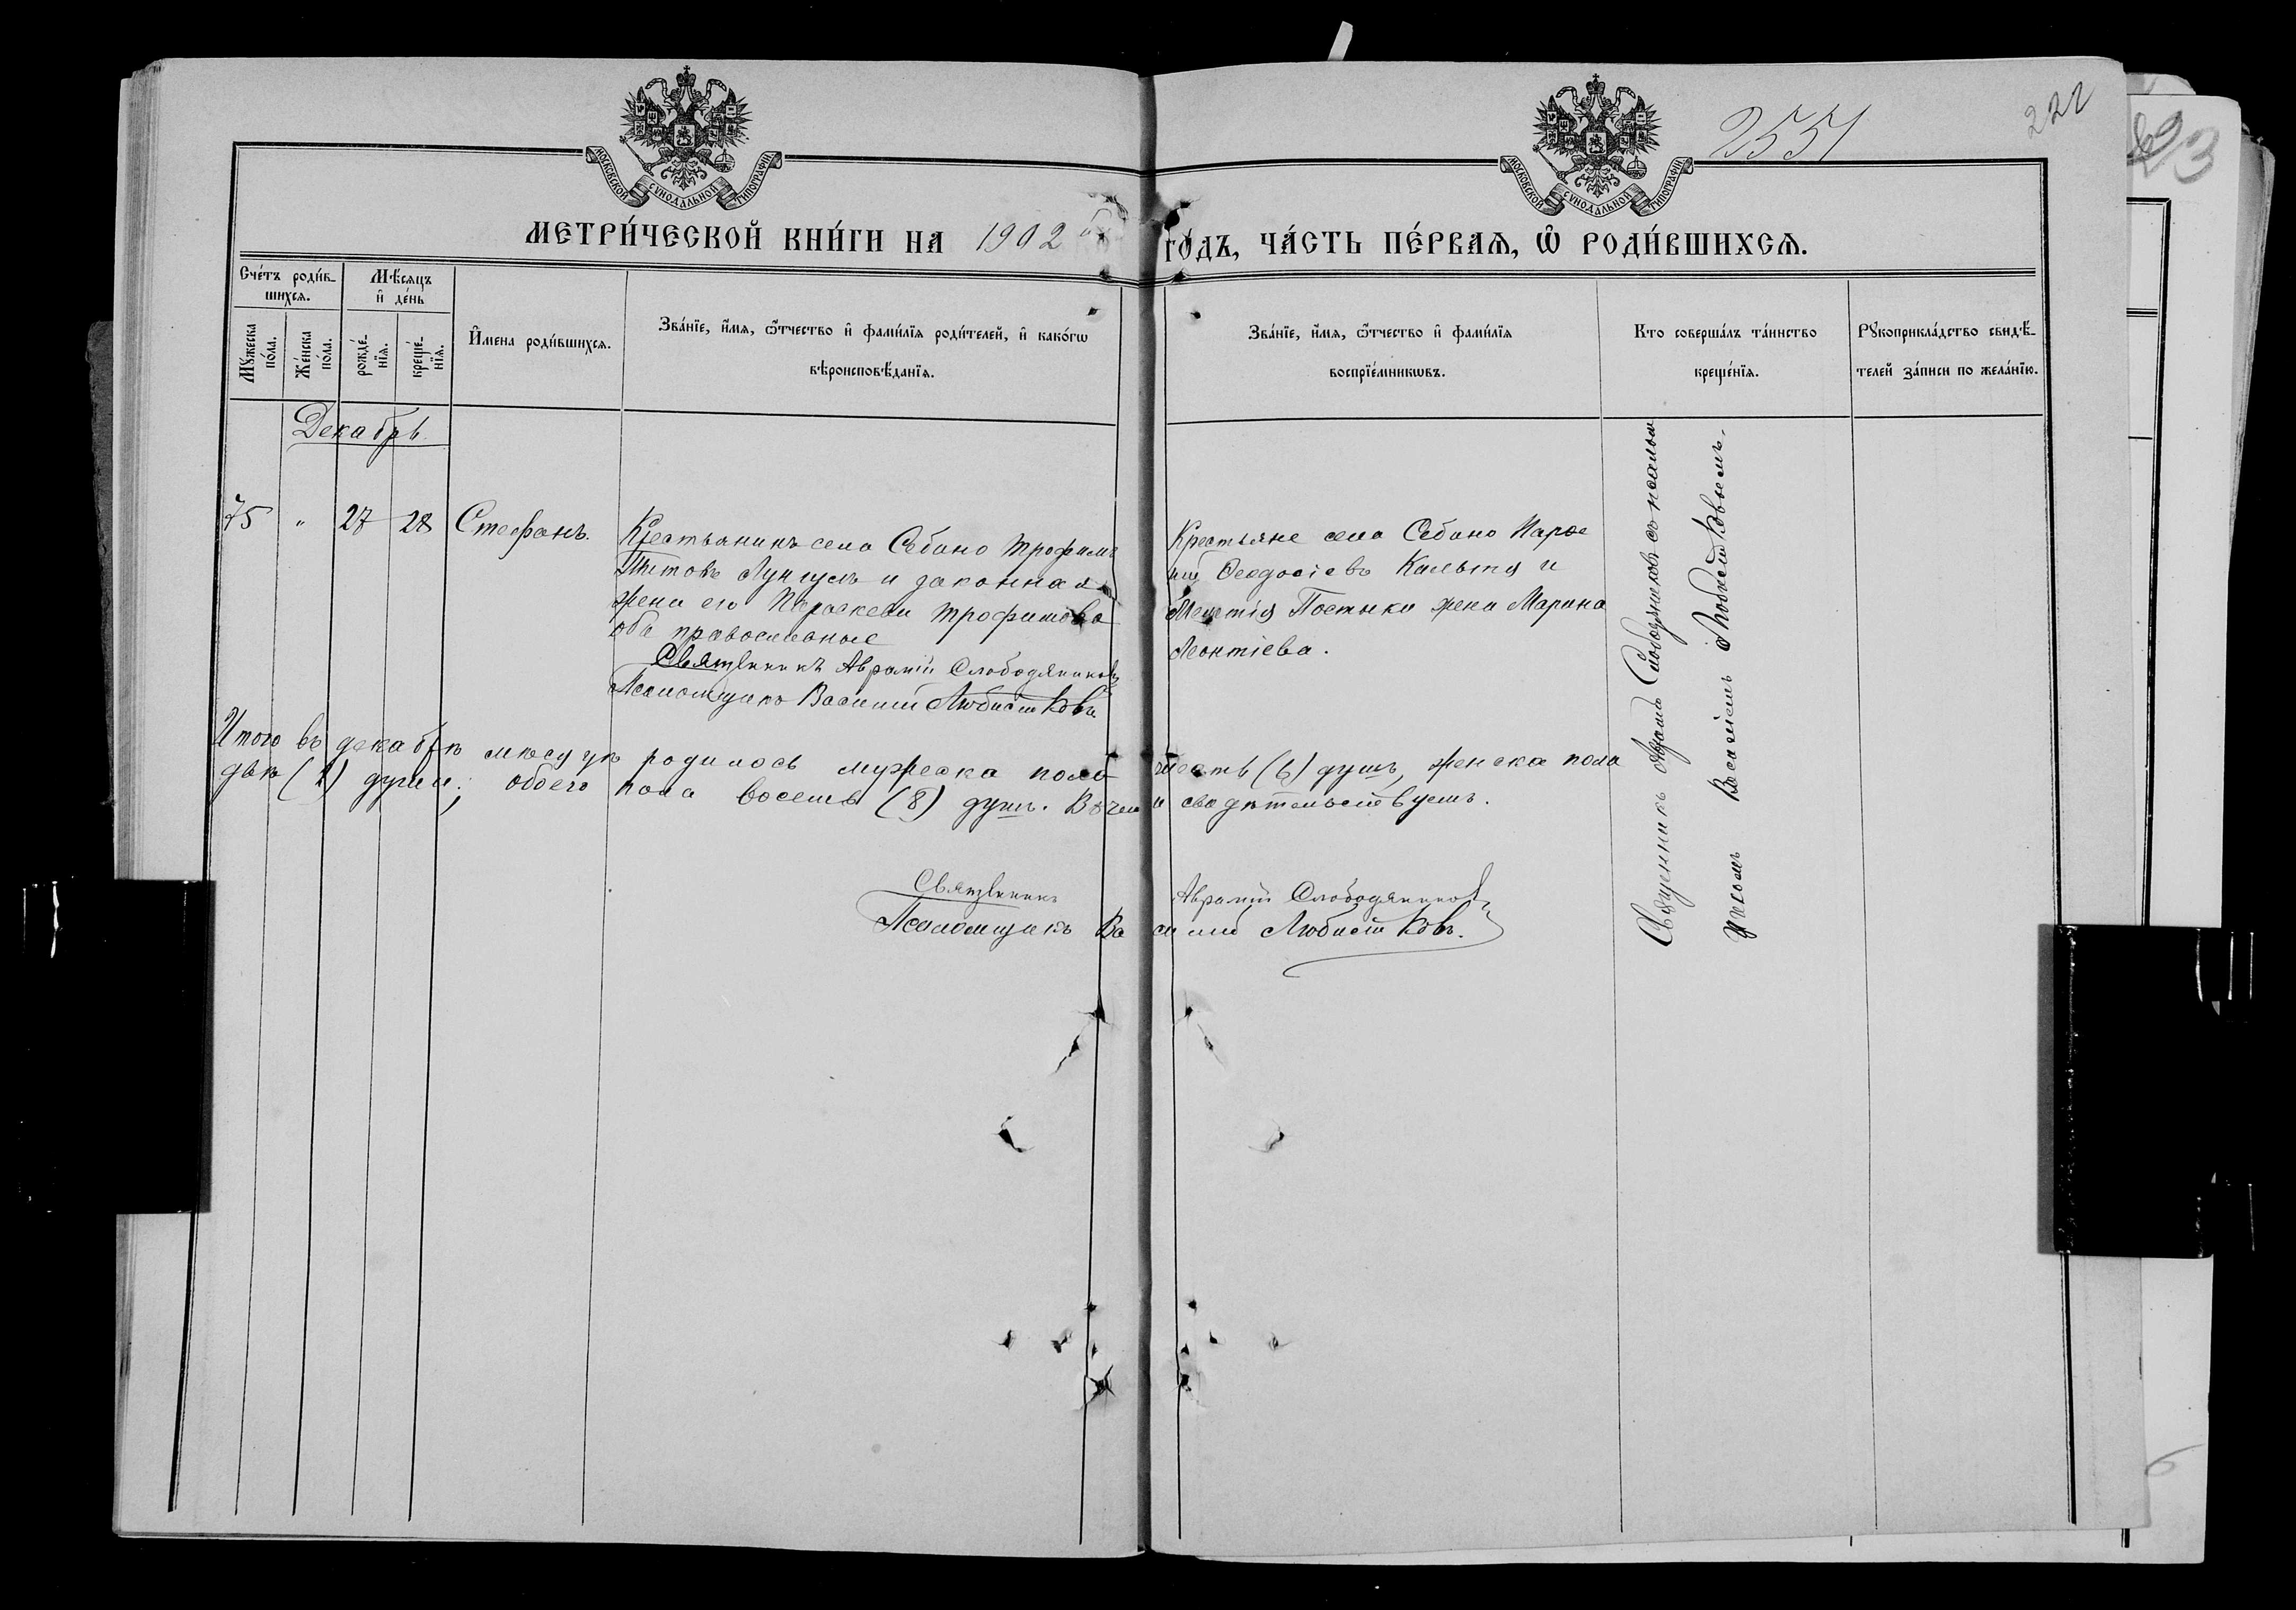 МОСКОВСКОЙ СУНОДАЛЬНОЙ ТИПОГРАФІИ
МОСКОВСКОЙ СУНОДАЛЬНОЙ ТИПОГРАФІИ
2551
222
223
МЕТРИ́ЧЕСКОЙ КНИ́ГИ НА 1902 ГО́ДЪ, ЧА́СТЬ ПЕ́РВАѦ, Ѡ҆ РОДИ́ВШИХСѦ.
Сче́тъ роди́в-
шихсѧ.
Мꙋ́жеска
по́ла.
Же́нска
по́ла.
Мѣ́сѧцъ
и҆ де́нь
рожде́-
нїѧ.
креще́-
нїѧ.
И҆мена роди́вшихсѧ.
Зва́нїе, и҆́мѧ, ѻ҆́тчество и҆ фами́лїѧ роди́телей, и҆ како́гѡ
вѣроисповѣ́данїѧ.
Зва́нїе, и҆́мѧ, ѻ҆́тчество и҆ фами́лїѧ
воспрїе́мникѡвъ.
Кто соверша́лъ та́инство
креще́нїѧ.
Рꙋкоприкла́дство свидѣ́-
телей за́писи по жела́нїю.
Декабрь
75 " 27 28 Стефанъ.
Крестьянинъ села Себино Трофимъ
Титовъ Лунгулъ и законная
жена его Параскева Трофимова
оба православные
Священникъ Аврамій Слободяниковъ
Псаломщикъ Василий Любистковъ
Крестьяне села Себино
Ѳеодосіевъ и
жена Марина
Леонтіева.
Священникъ Слободяниковъ съ псалом
щикомъ Василіемъ Любистковымъ.
Итого въ декабрѣ мѣсяцѣ родилось мужеска пола шесть (6) душъ, женска пола
двѣ (2) души; обоего пола восемь (8) душъ. Въ чемъ и свидѣтельствуемъ.
Священникъ Аврамій Слободяниковъ
Псаломщикъ Василий Любистковъ.